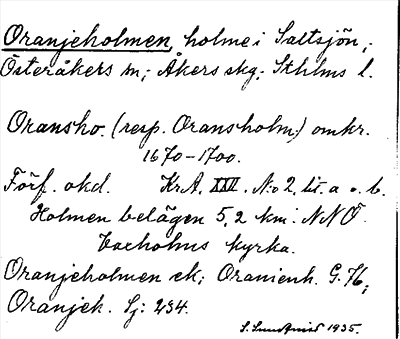 Oranjeholmen, holme i Saltsjön,
Österåkers sn; Åkers skg; Sthlms l.
Oransho. (resp. Oransholm) omkr.
1670-1700.
Förf. okd. KrA. XXV. N:o 2, lit. a o. b.
Holmen belägen 5,2 km. NNÖ.
Vaxholms kyrka.
Oranjeholmen ek; Oranienh. G. 76;
Oranjeh. Sj: 234.
1935.